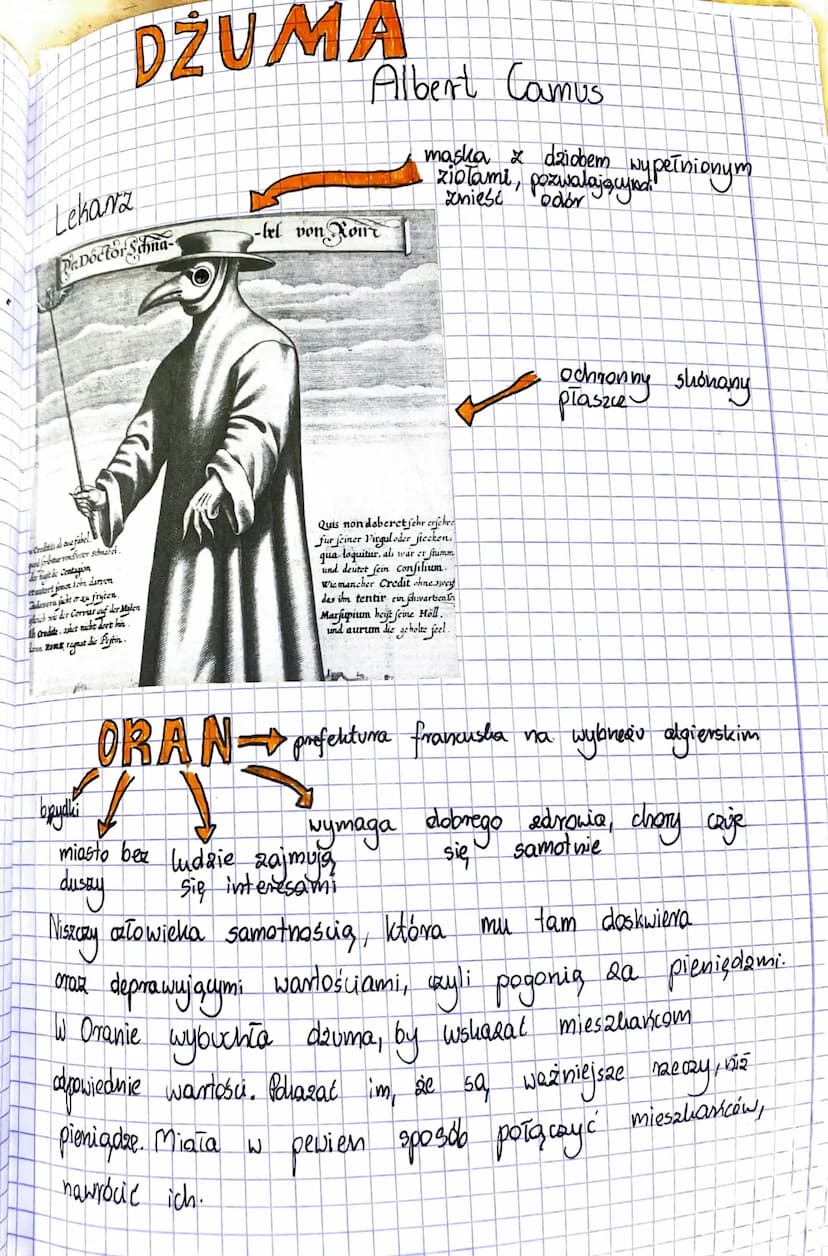 DŻUMA
Albert Camus
maska z dziobem wypełnionym
ziołami, pozwalającymi
znieść odór
Lekarz
Doctor Schna-
-bel von Rom
ochronny skórzany
płaszcz
Quis non deberet sehr erschre
fur seiner Virgul oder stecken,
qua loquitur, als wär er stumm
und deutet sein Consilium.
Wie mancher Credit ohne
das ihm tentir ein
Marsupium heist seine Höll,
und aurum die geholte seel.
ORAN → prefektura francuska na wybrzeżu algierskim
brzydki
miasto bez
duszy
ludzie zajmują
się interesami
wymaga dobrego zdrowia, chory czuje
się samotnie
Niszczy człowieka samotnością, która mu tam doskwiera
oraz deprawującymi wartościami, czyli pogonią za pieniędzmi.
W Oranie wybuchła dżuma, by wskazać mieszkańcom
odpowiednie wartości. Pokazać im, że są ważniejsze rzeczy, niż
pieniądze. Miała w pewien sposób połączyć mieszkańców,
nawrócić ich.